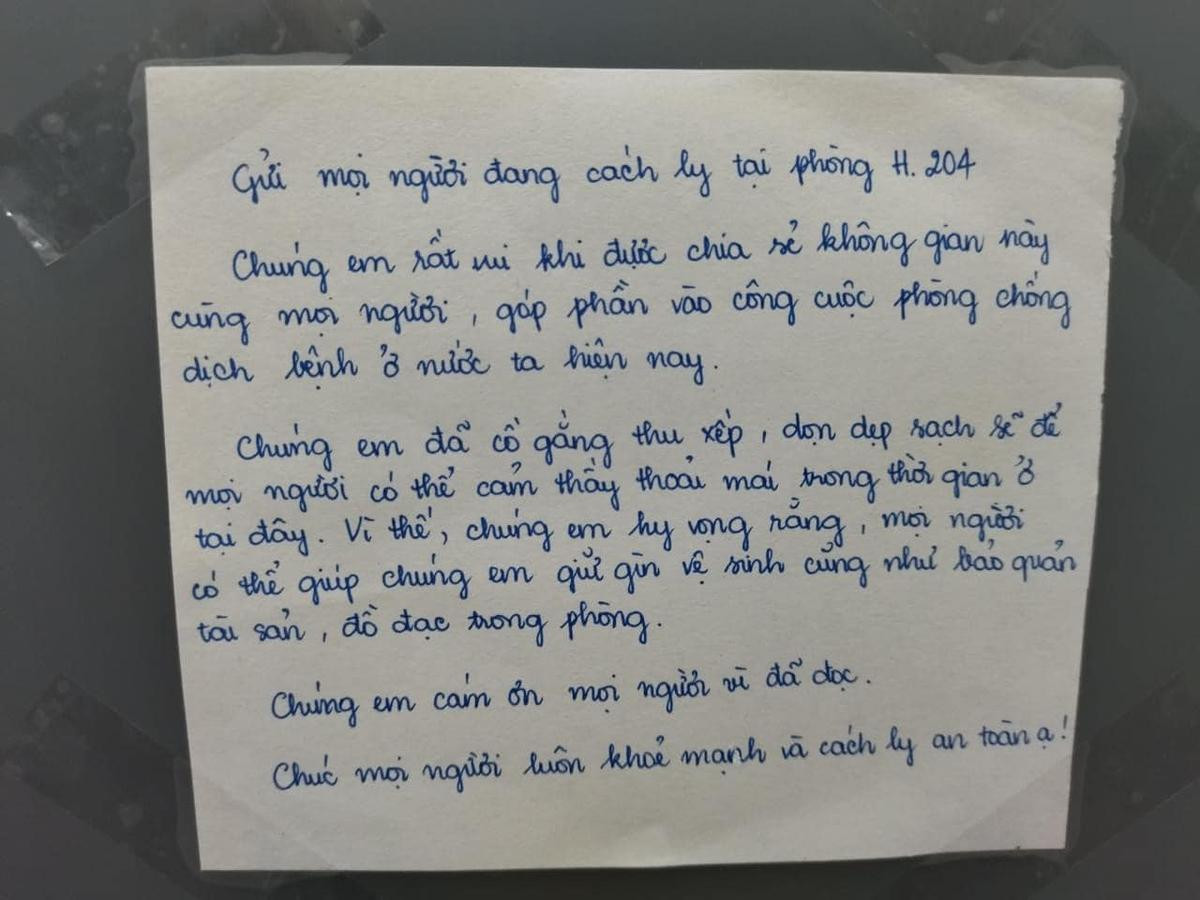 Gửi mọi người đang cách ly tại phòng H. 204
Chúng em rất vui khi được chia sẻ không gian này
cùng mọi người, góp phần vào công cuộc phòng chống
dịch bệnh ở nước ta hiện nay.
Chúng em đã cố gắng thu xếp, dọn dẹp sạch sẽ để
mọi người có thể cảm thấy thoải mái trong thời gian ở
tại đây. Vì thế, chúng em hy vọng rằng, mọi người
có thể giúp chúng em giữ gìn vệ sinh cũng như bảo quản
tài sản, đồ đạc trong phòng.
Chúng em cám ơn mọi người vì đã đọc.
Chúc mọi người luôn khoẻ mạnh và cách ly an toàn ạ!